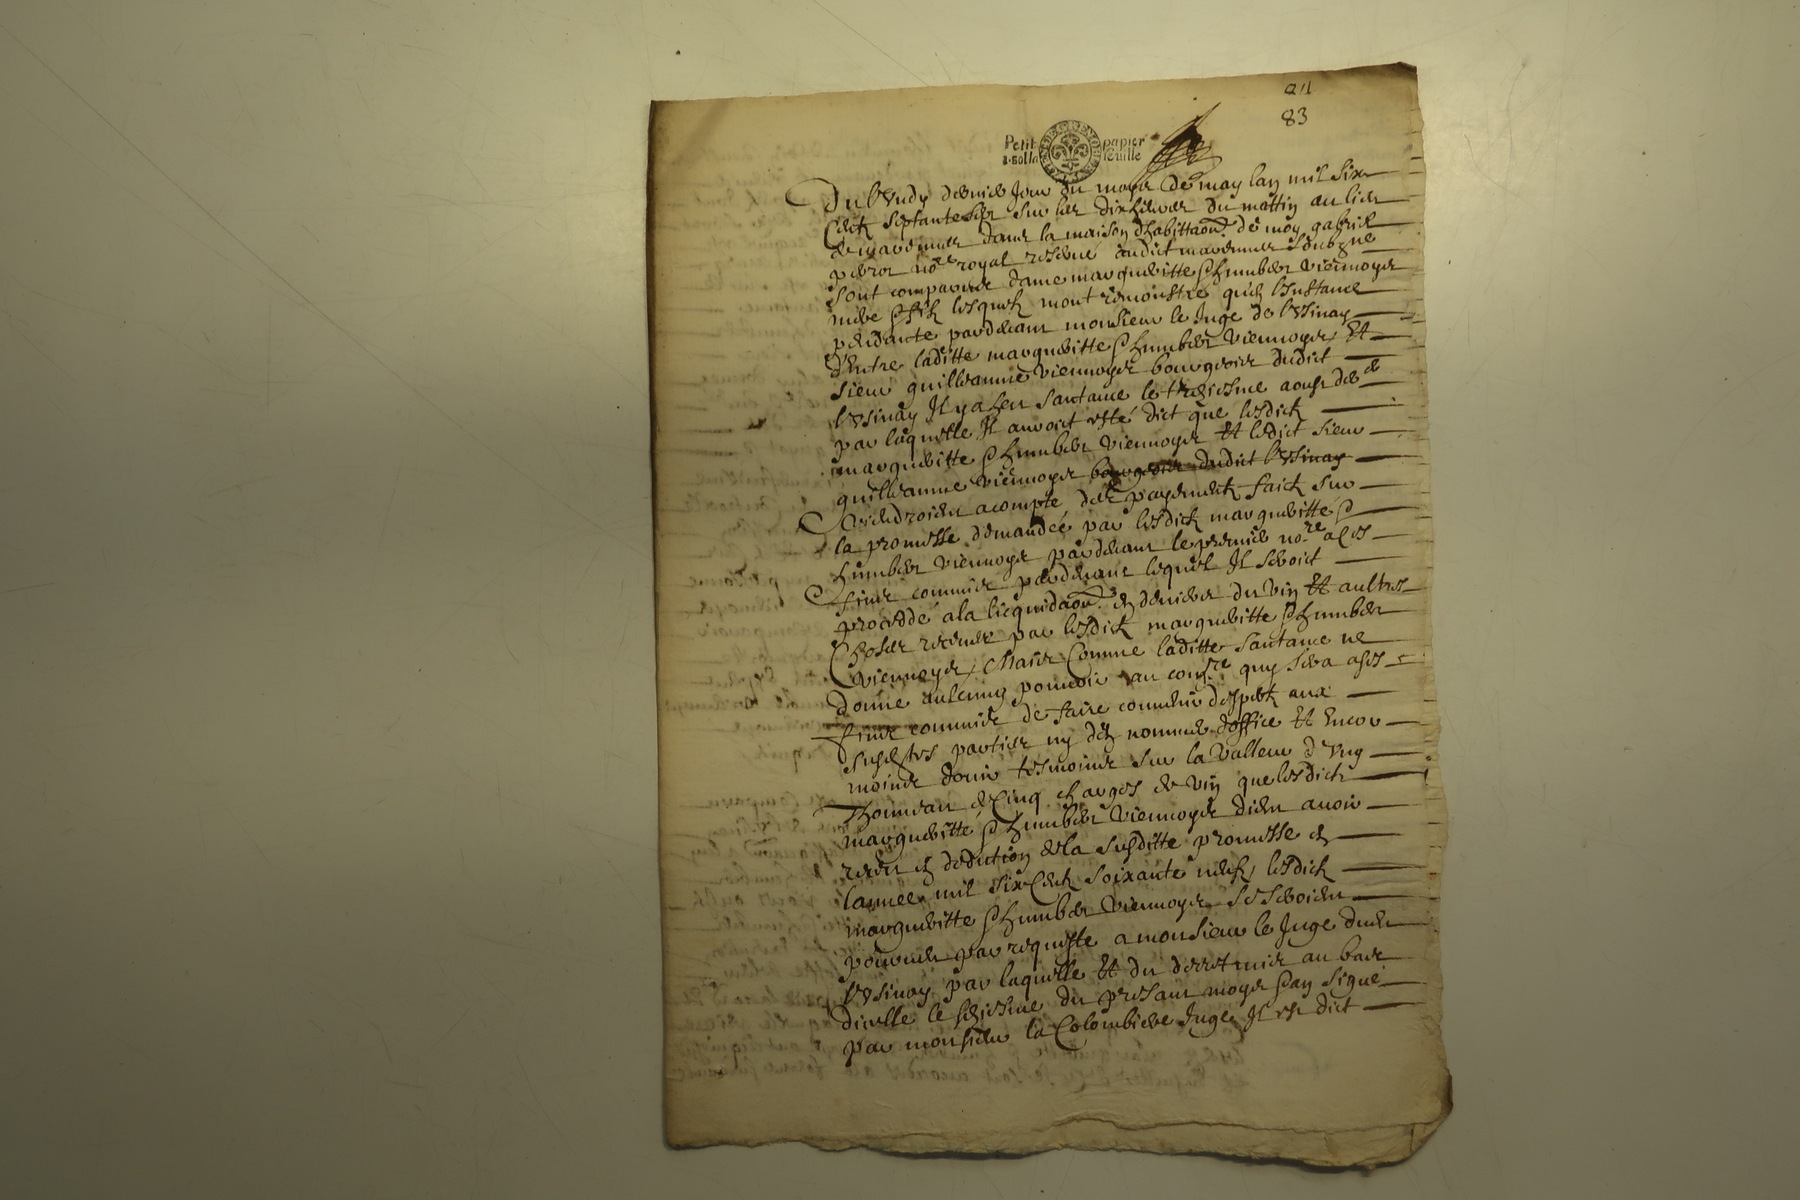 211
83
Petit papier
a. solla feuille
Du lundy dernier Jour du moys de may lan mil six
Centz septante sept sur les dix heures du mattin au lieu
de mardennes dans la maison dhabittaon. de moy gabriel
no.re royal reservé audict
sont comparus dame margueritte humbert viennoys
mere & filz lesquelz mont remonstré quen linstance
pendante pardevant monsieur le Juge de
Entre laditte margueritte & humbert viennoys, Et
sieur guilleaume viennoys bourgeois dudict
Il y a heu santance le aoust
par laquelle Il auroit esté dict que lesdictz
margueritte & humbert viennoys Et ledict sieur
guilleaume viennoys bourgeois dudict
viendroient a compte des payementz faictz sur
la promesse demandée par lesdictz margueritte &
humbert viennoys pardevant le premier no.re a ces
fins commis pardevant lequel Il seroit
proceddé a la licquidaon. en deniers du vin Et aultres
Choses receues par lesdictz margueritte & humbert
viennoys, Mais Comme laditte santance ne
donne aulcung pouvoir au com.re quy sera a ses
fins commis de faire convenir despertz aux
parties ny den nommer doffice Et Encor
moins douir tesmoins sur la valleur dung
Thonneau de Cinq charges de vin que lesdictz
margueritte & humbert viennoys dient avoir
receu en dedution de la susditte promesse en
lannee mil six Centz soixante neufz, lesdictz
margueritte & humbert viennoys se seroient
pourveu par requeste a monsieur le Juge dudict
par laquelle Et du decret mis au bas
dicelle le du presant moys & an signé
par monsieur la Colombiere Juge, Il est dict